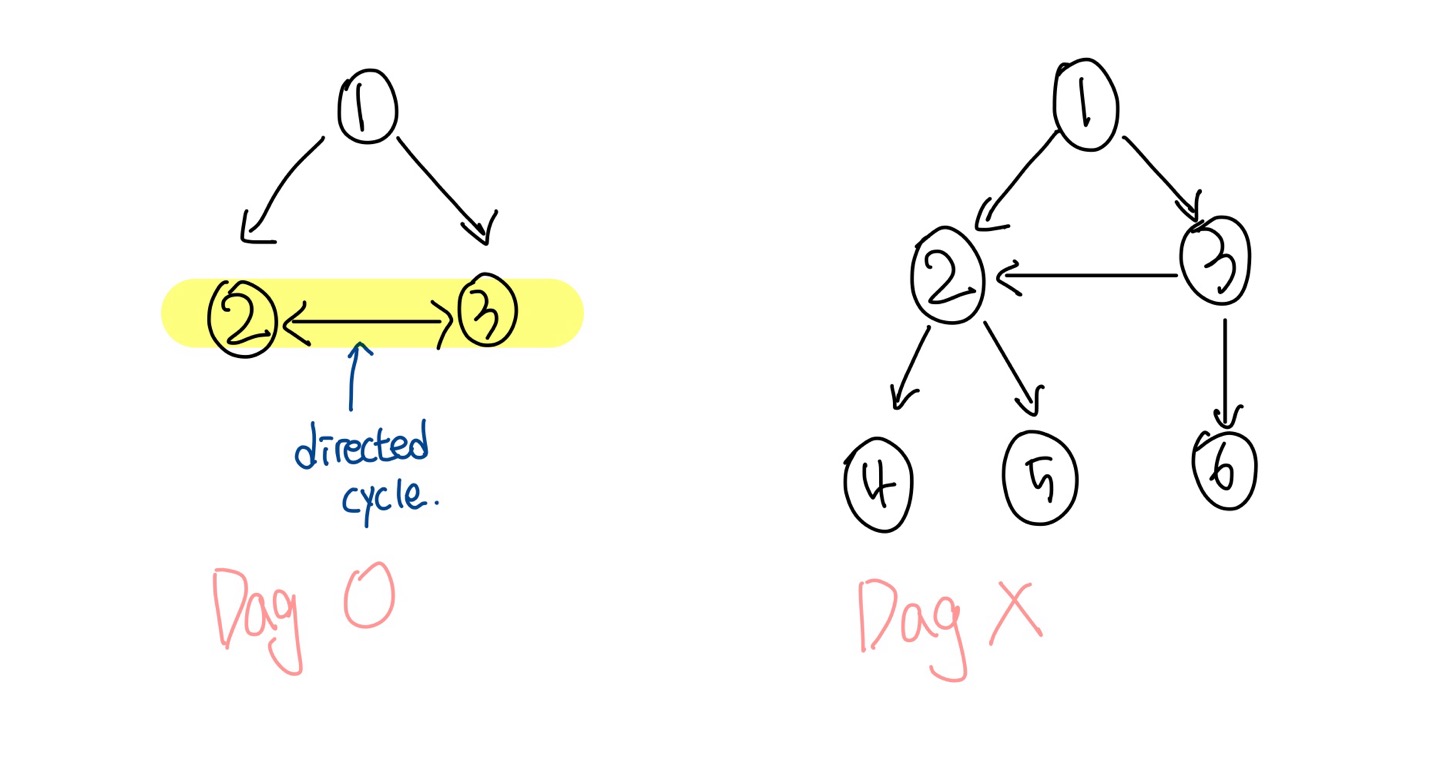 1
2
3
directed
cycle.
Dag O
1
2
3
4
5
6
Dag X